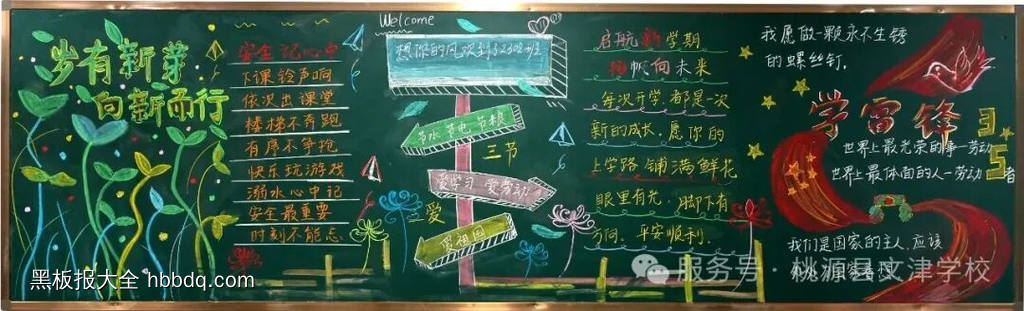 岁有新芽
向新而行
安全记心中
下课铃声响
依次出课堂
楼梯不奔跑
有序不争抢
快乐玩游戏
溺水心中记
安全最重要
时刻不能忘
Welcome
想你的风吹到了2302班
节水 节电 节粮
三节
爱学习 爱劳动
三爱
爱祖国
启航新学期
扬帆向未来
每次开学,都是一次
新的成长,愿你的
上学路铺满鲜花
眼里有光,脚下有
方向,平安顺利.
我愿做一颗永不生锈
的螺丝钉.
学雷锋
3
5
世界上最光荣的事—劳动
世界上最体面的人—劳动者
我们是国家的主人,应该
服务号·桃源县文津学校
黑板报大全 hbbdq.com